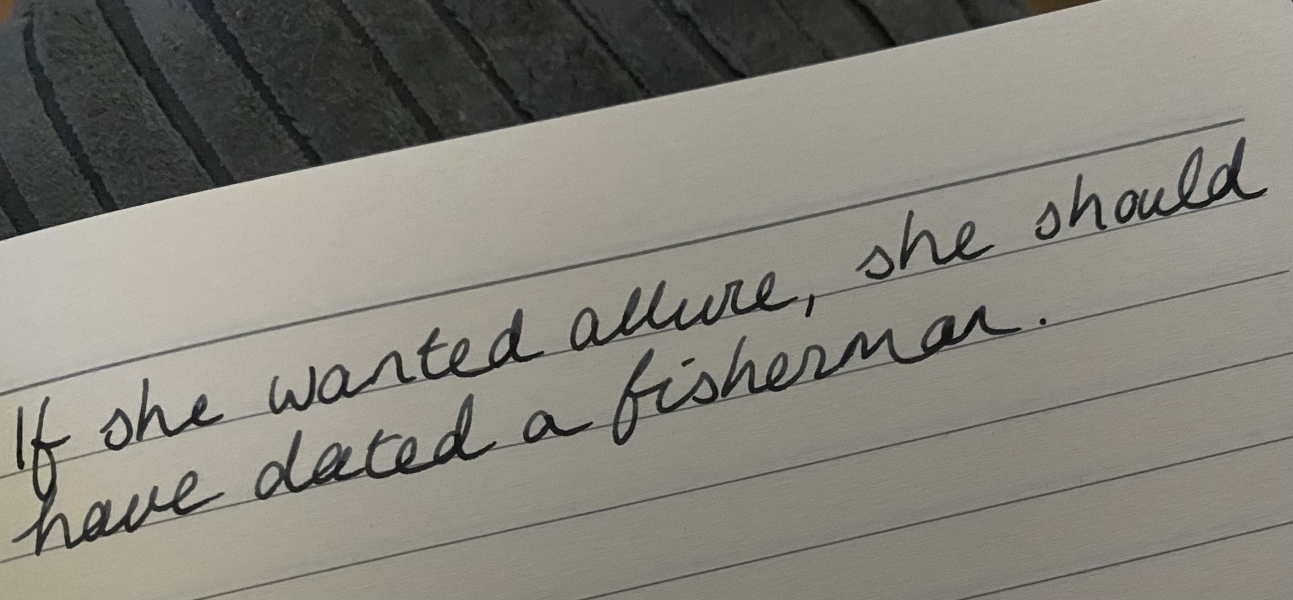 If she wanted allure, she should
have dated a fisherman.